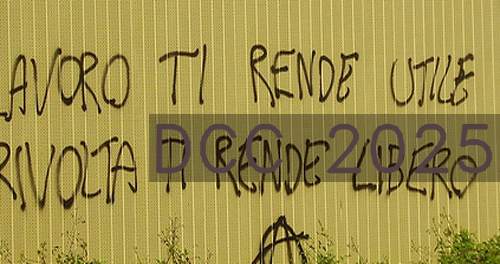 LAVORO TI RENDE UTILE
RIVOLTA TI RENDE LIBERO
DCC 2025
A